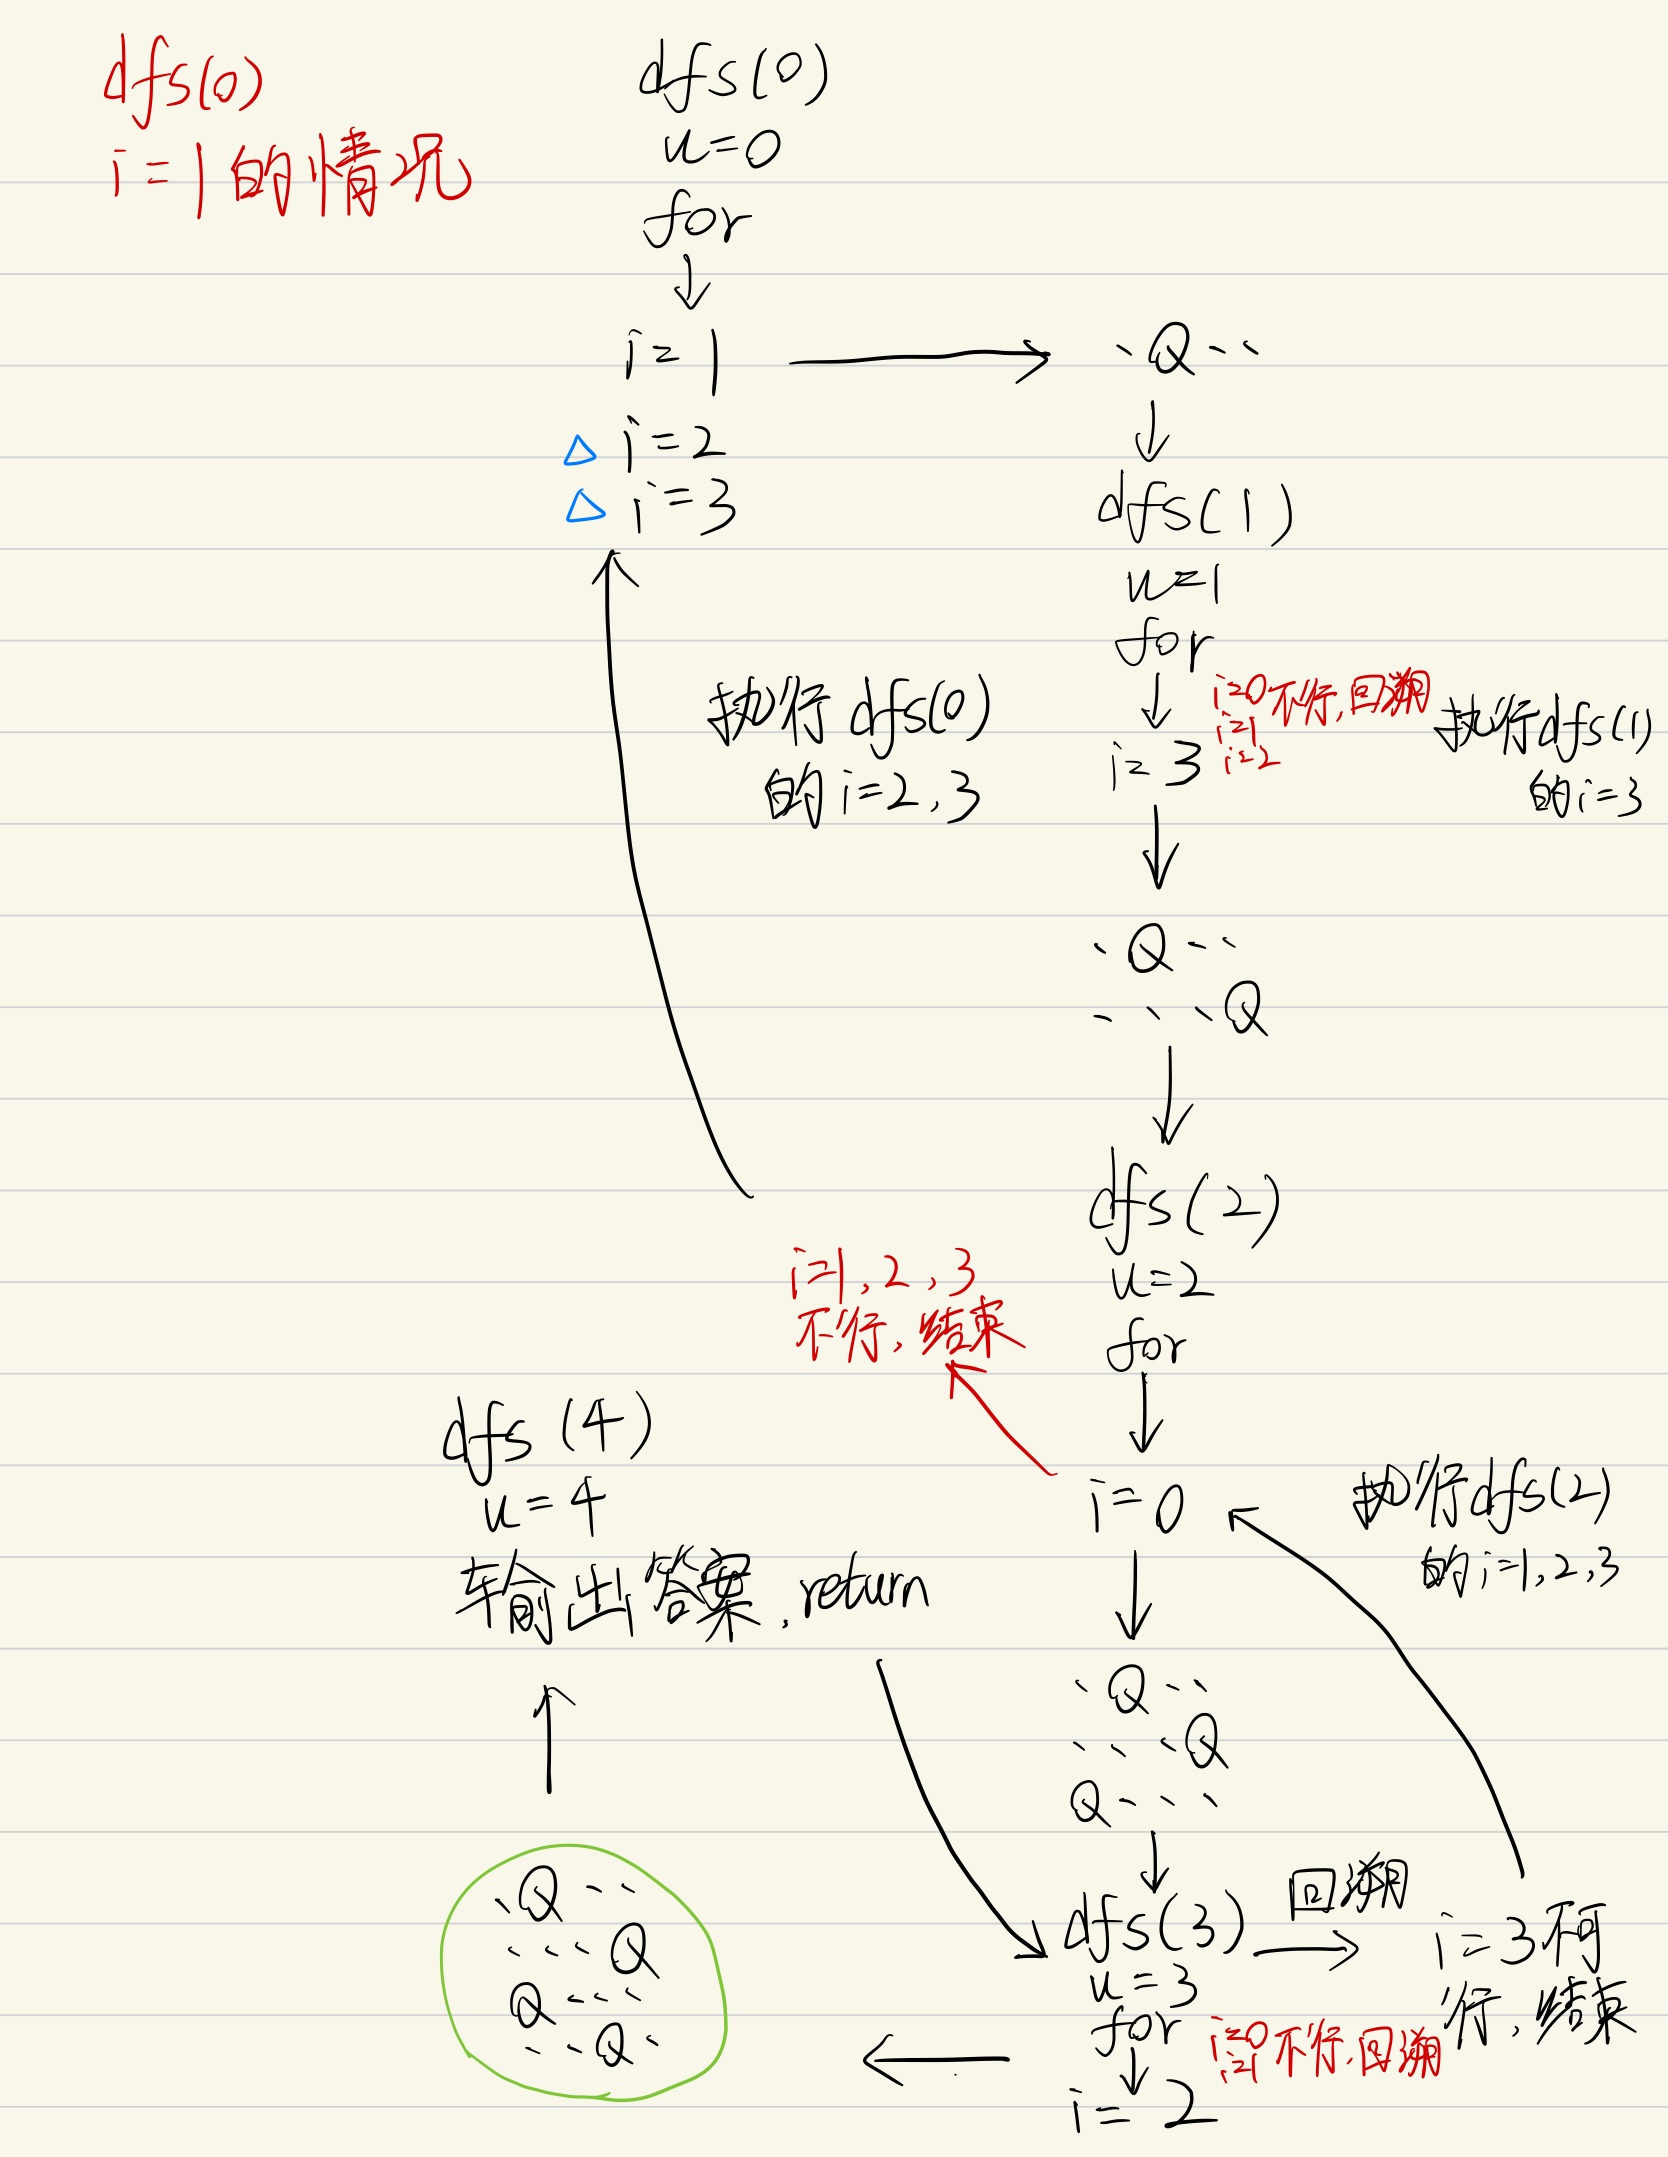 dfs(0)
i=1的情况
dfs(0)
u=0
for
↓
i=1 → .Q..
△ i=2
△ i=3
↓
dfs(1)
u=1
for
↓
i=0不行,回溯
i=1
i=2
i=3
执行dfs(1)
的i=3
执行dfs(0)
的i=2,3
↓
.Q..
...Q
↓
dfs(2)
u=2
for
↓
i=0
i=1,2,3
不行,结束
执行dfs(2)
的i=1,2,3
↓
.Q..
...Q
Q...
↓
dfs(3)
u=3
for
↓
i=0不行,回溯
i=1
i=2
回溯
→
i=3不可
行,结束
←
.Q..
...Q
Q...
..Q.
↑
dfs(4)
u=4
输出答案,return